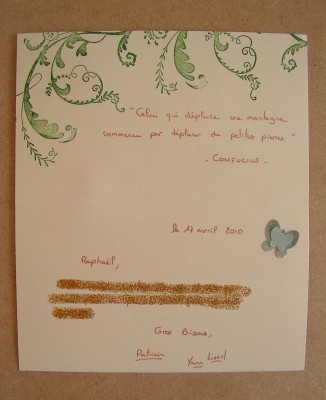 "Celui qui déplace une montagne
commence par déplacer de petites pierres"
- CONFUCIUS -
le 17 avril 2010
Raphaël,
Gros Bisous,
Patricia Yann Lionel